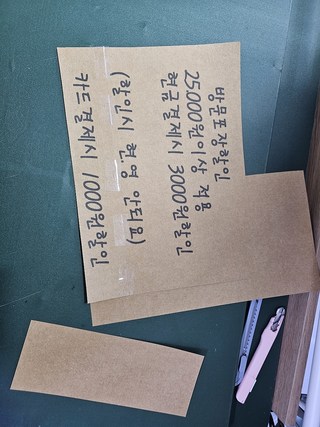 방문포장할인
25,000원이상 적용
현금결제시 3000원할인
(할인시 현영 안되요)
카드결제시 1000원할인